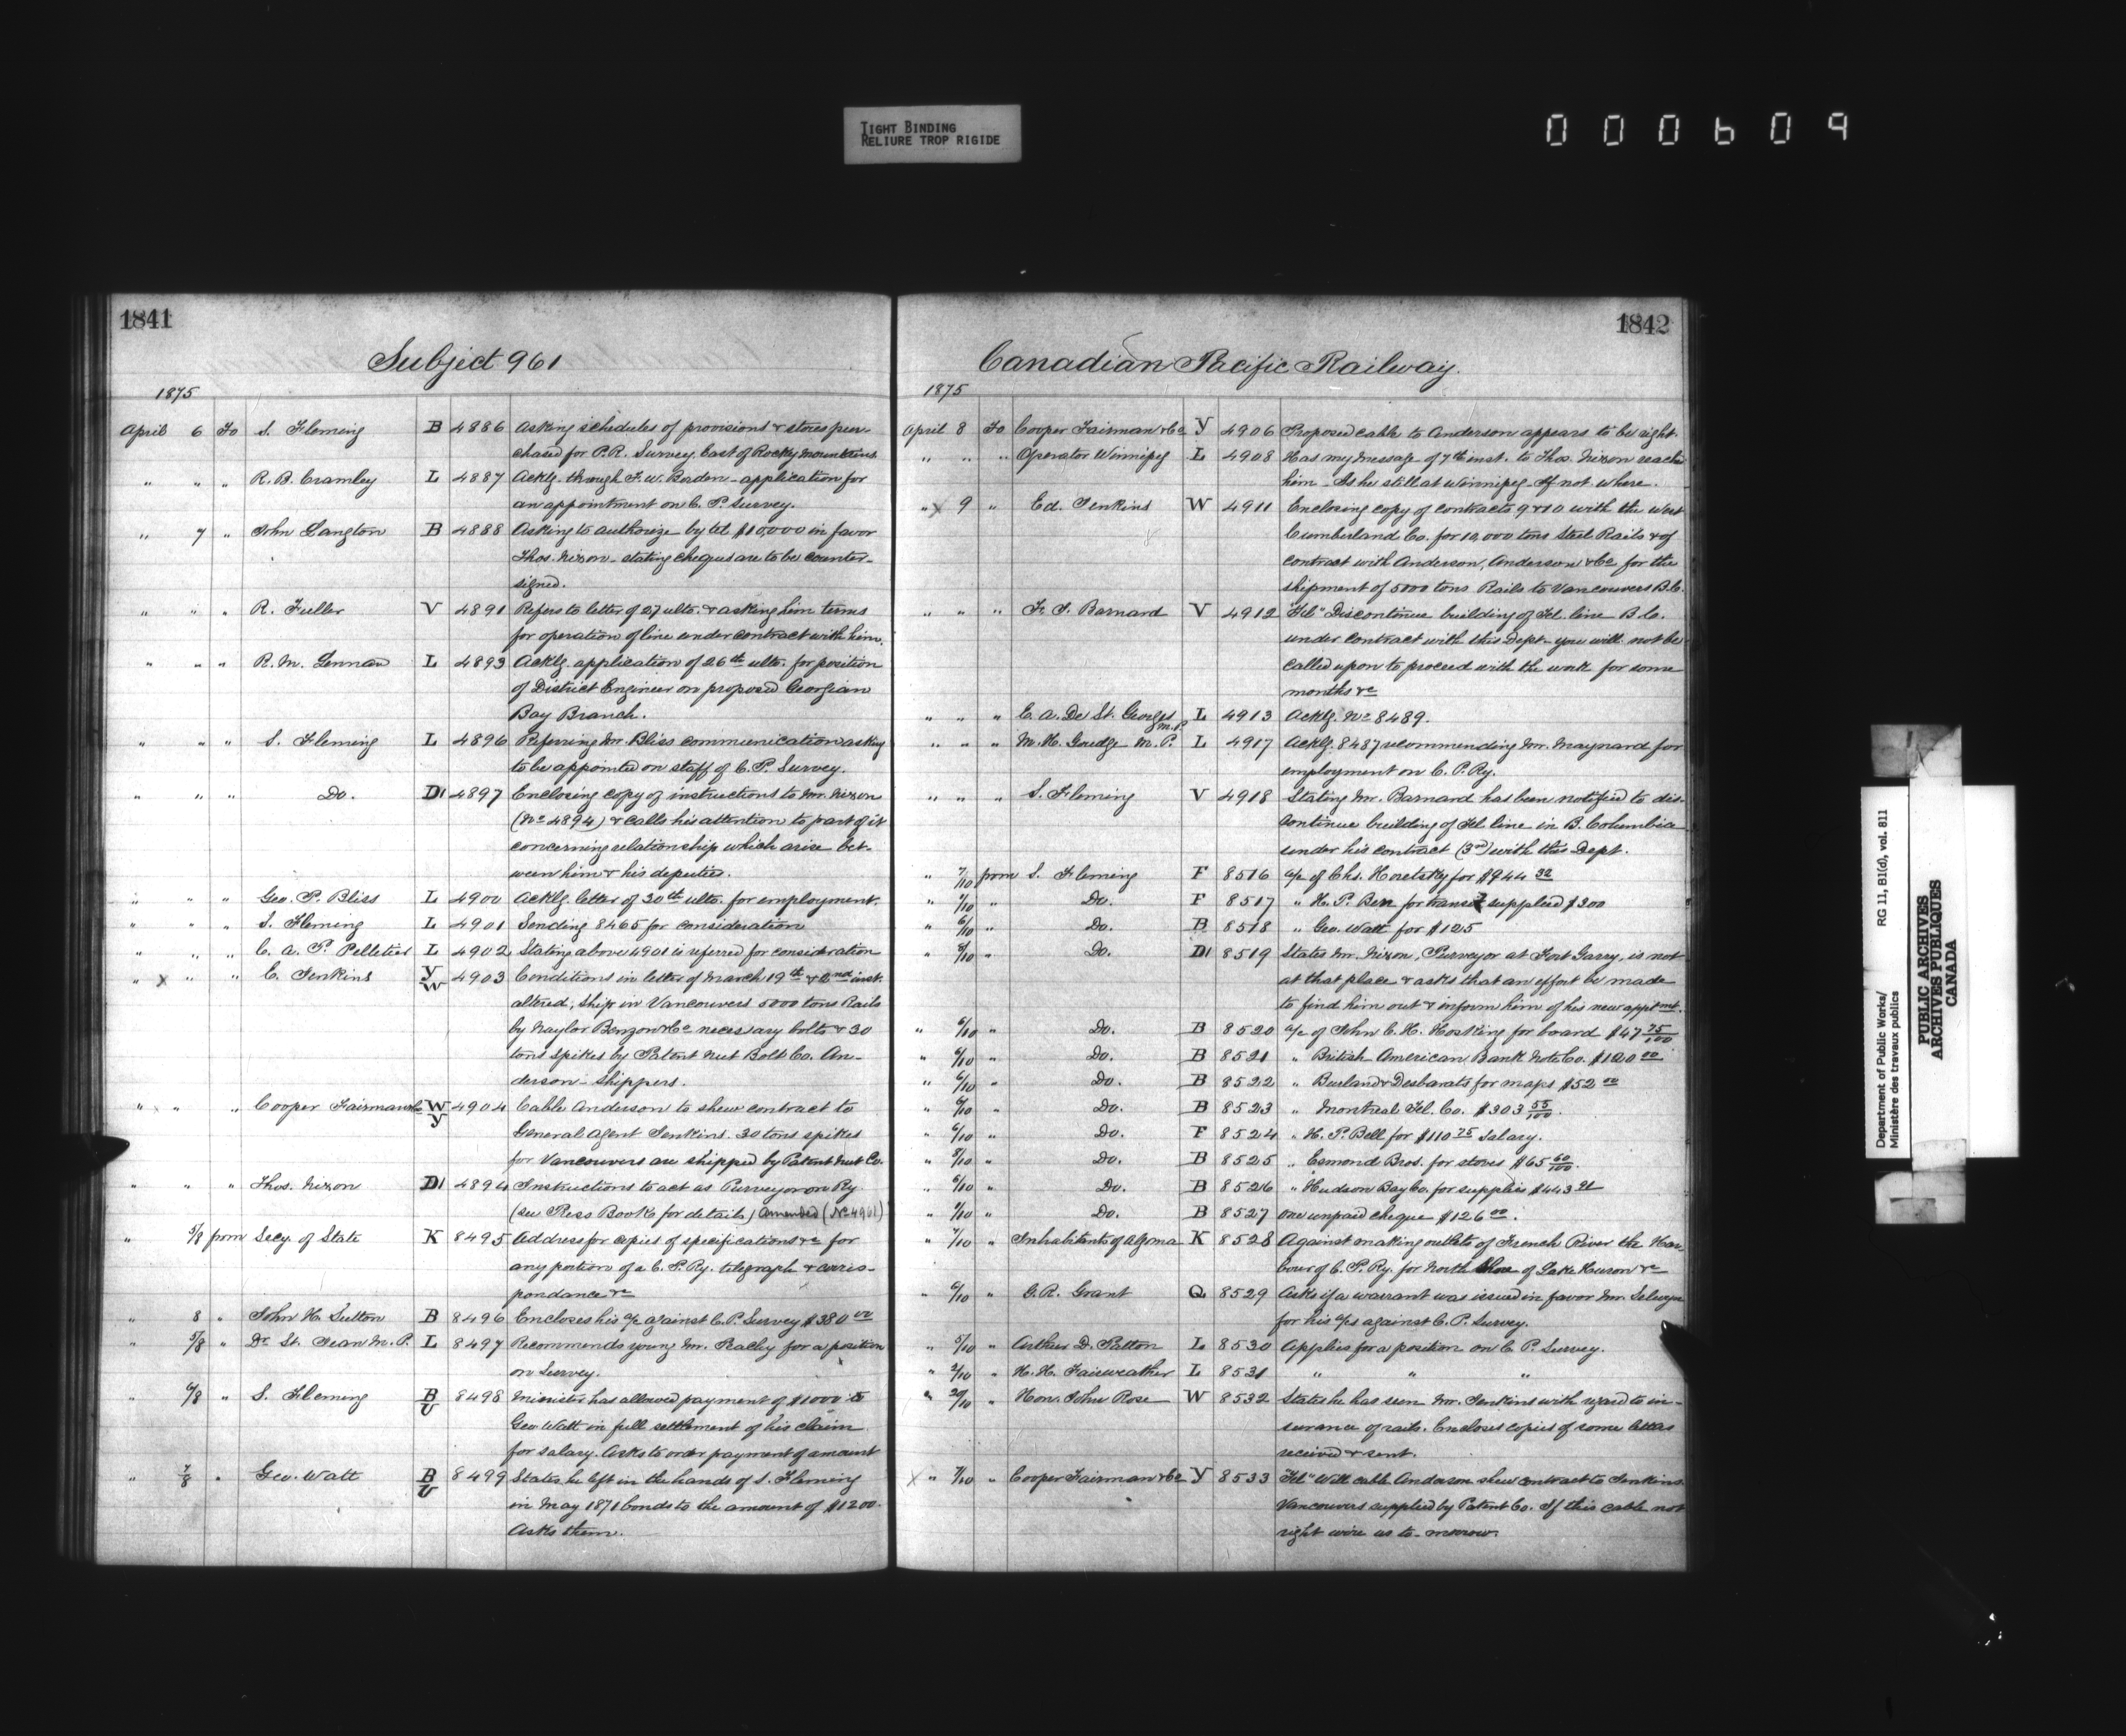 TIGHT BINDING
RELIURE TROP RIGIDE
000609
1841
Subject 961
1875
April 6 To S. Fleming B 4886 Asking schedules of provisions & stores pur-
chased for P.R. Survey East of Rocky Mountains
" " " R. B. Cramley L 4887 Acklg. through F. W. Borden - application for
an appointment on C. P. Survey.
" 7 " John Langton B 4888 Asking to authorize by tel $10,000 in favor
Thos. Nixon - stating cheques are to be counter-
signed.
" " " R. Fuller V 4891 Refers to letter of 27 ulto. & asking him terms
for operation of line under contract with him.
" " " R. M. Lennan L 4893 Acklg. application of 26th ulto. for position
of District Engineer on proposed Georgian
Bay Branch.
" " " S. Fleming L 4896 Referring Mr. Bliss communication asking
to be appointed on staff of C. P. Survey.
" " " Do. D1 4897 Enclosing copy of instructions to Mr. Nixon
(No 4894) & calls his attention to part of it
concerning relationship which arise bet-
ween him & his deputies.
" " " Geo. P. Bliss L 4900 Acklg. letter of 30th ulto. for employment.
" " " S. Fleming L 4901 Sending 8465 for consideration
" " " C. A. P. Pelletier L 4902 Stating above 4901 is referred for consideration
" x " " E. Jenkins Y W 4903 Conditions in letter of March 19th & 2nd inst.
altered; ship in Vancouvers 5000 tons Rails
by Naylor Benzon & Co necessary bolts & 30
tons spikes by Patent Nut Bolt Co. An-
derson - shippers.
" x " " Cooper Fairman & Co W Y 4904 Cable Anderson to shew contract to
General Agent Jenkins. 30 tons spikes
for Vancouvers are shipped by Patent Nut Co.
" " " Thos. Nixon D1 4894 Instructions to act as Purveyor on Ry
(see Press Book for details) Amended (No 4961)
" 5/8 from Secy. of State K 8495 Address for copies of specifications &c for
any portion of a C. P. Ry. telegraph & corres-
pondance &c
" 8 " John H. Sutton B 8496 Encloses his a/c against C. P. Survey $380 00
" 5/8 " Dr. St. Jean M. P. L 8497 Recommends young Mr. Rachy for a position
on Survey.
" 6/8 " S. Fleming B U 8498 Minister has allowed payment of $1000 to
Geo. Watt in full settlement of his claim
for salary. Asks to order payment of amount
" 7/8 " Geo. Watt B U 8499 States he left in the hands of S. Fleming
in May 1871 bonds to the amount of $1200.
Asks them.
1842
Canadian Pacific Railway.
1875
April 8 To Cooper Fairman & Co Y 4906 Proposed cable to Anderson appears to be right.
" " " Operator Winnipeg L 4908 Has my message of 7th inst. to Thos. Nixon reached
him - Is he still at Winnipeg - If not where.
" x 9 " Ed. Jenkins W 4911 Enclosing copy of contracts 9 & 10 with the West
Cumberland Co. for 10,000 tons Steel Rails & of
contract with Anderson, Anderson & Co for the
shipment of 5000 tons Rails to Vancouvers B.C.
" " " F. J. Barnard V 4912 "Tel" Discontinue building of Tel. line B. C.
under contract with this Dept - you will not be
called upon to proceed with the work for some
months &c
" " " E. A. De St. Georges M.P. L 4913 Acklg. No 8489.
" " " M. H. Goudge M. P. L 4917 Acklg. 8487 recommending Mr. Maynard for
employment on C. P. Ry.
" " " S. Fleming V 4918 Stating Mr. Barnard has been notified to dis-
continue building of Tel line in B. Columbia
under his contract (3rd) with this Dept.
" 7/10 from S. Fleming F 8516 a/c of Chs. Horetzky for $944 32
" 7/10 " Do. F 8517 " H. P. Bell for transit supplied $300
" 6/10 " Do. B 8518 " Geo. Watt for $125
" 8/10 " Do. D1 8519 States Mr. Nixon, Purveyor at Fort Garry, is not
at that place & asks that an effort be made
to find him out & inform him of his new apptmt.
" 6/10 " Do. B 8520 a/c of John C. H. Hosking for board $47 75/100
" 6/10 " Do. B 8521 " British American Bank Note Co. $120 00
" 6/10 " Do. B 8522 " Burland & Desbarats for maps $52 00
" 6/10 " Do. B 8523 " Montreal Tel. Co. $303 55/100.
" 6/10 " Do. F 8524 " H. P. Bell for $110 75 salary.
" 8/10 " Do. B 8525 " Esmond Bros. for stoves $65 60/100.
" 6/10 " Do. B 8526 " Hudson Bay Co. for supplies $443 21
" 7/10 " Do. B 8527 one unpaid cheque $126 00.
" 7/10 " Inhabitants of Algoma K 8528 Against making outlets of French River the Har-
bour of C. P. Ry. for North Shore of Lake Huron &c
" 6/10 " G. R. Grant Q 8529 Asks if a warrant was issued in favor Mr. Selwyn
for his a/cs against C. P. Survey.
" 5/10 " Arthur D. Patton L 8530 Applies for a position on C. P. Survey.
" 2/10 " H. H. Fairweather L 8531 " " "
" 20/10 " Hon. John Rose W 8532 States he has seen Mr. Jenkins with regard to in-
surance of rails. Encloses copies of some letters
received & sent.
x " 7/10 " Cooper Fairman & Co Y 8533 "Tel" Will cable Anderson shew contract to Jenkins.
Vancouvers supplied by Patent Co. If this cable not
right wire us to-morrow.
Department of Public Works/ RG 11, B1(d), vol. 811
Ministère des travaux publics
PUBLIC ARCHIVES
ARCHIVES PUBLIQUES
CANADA